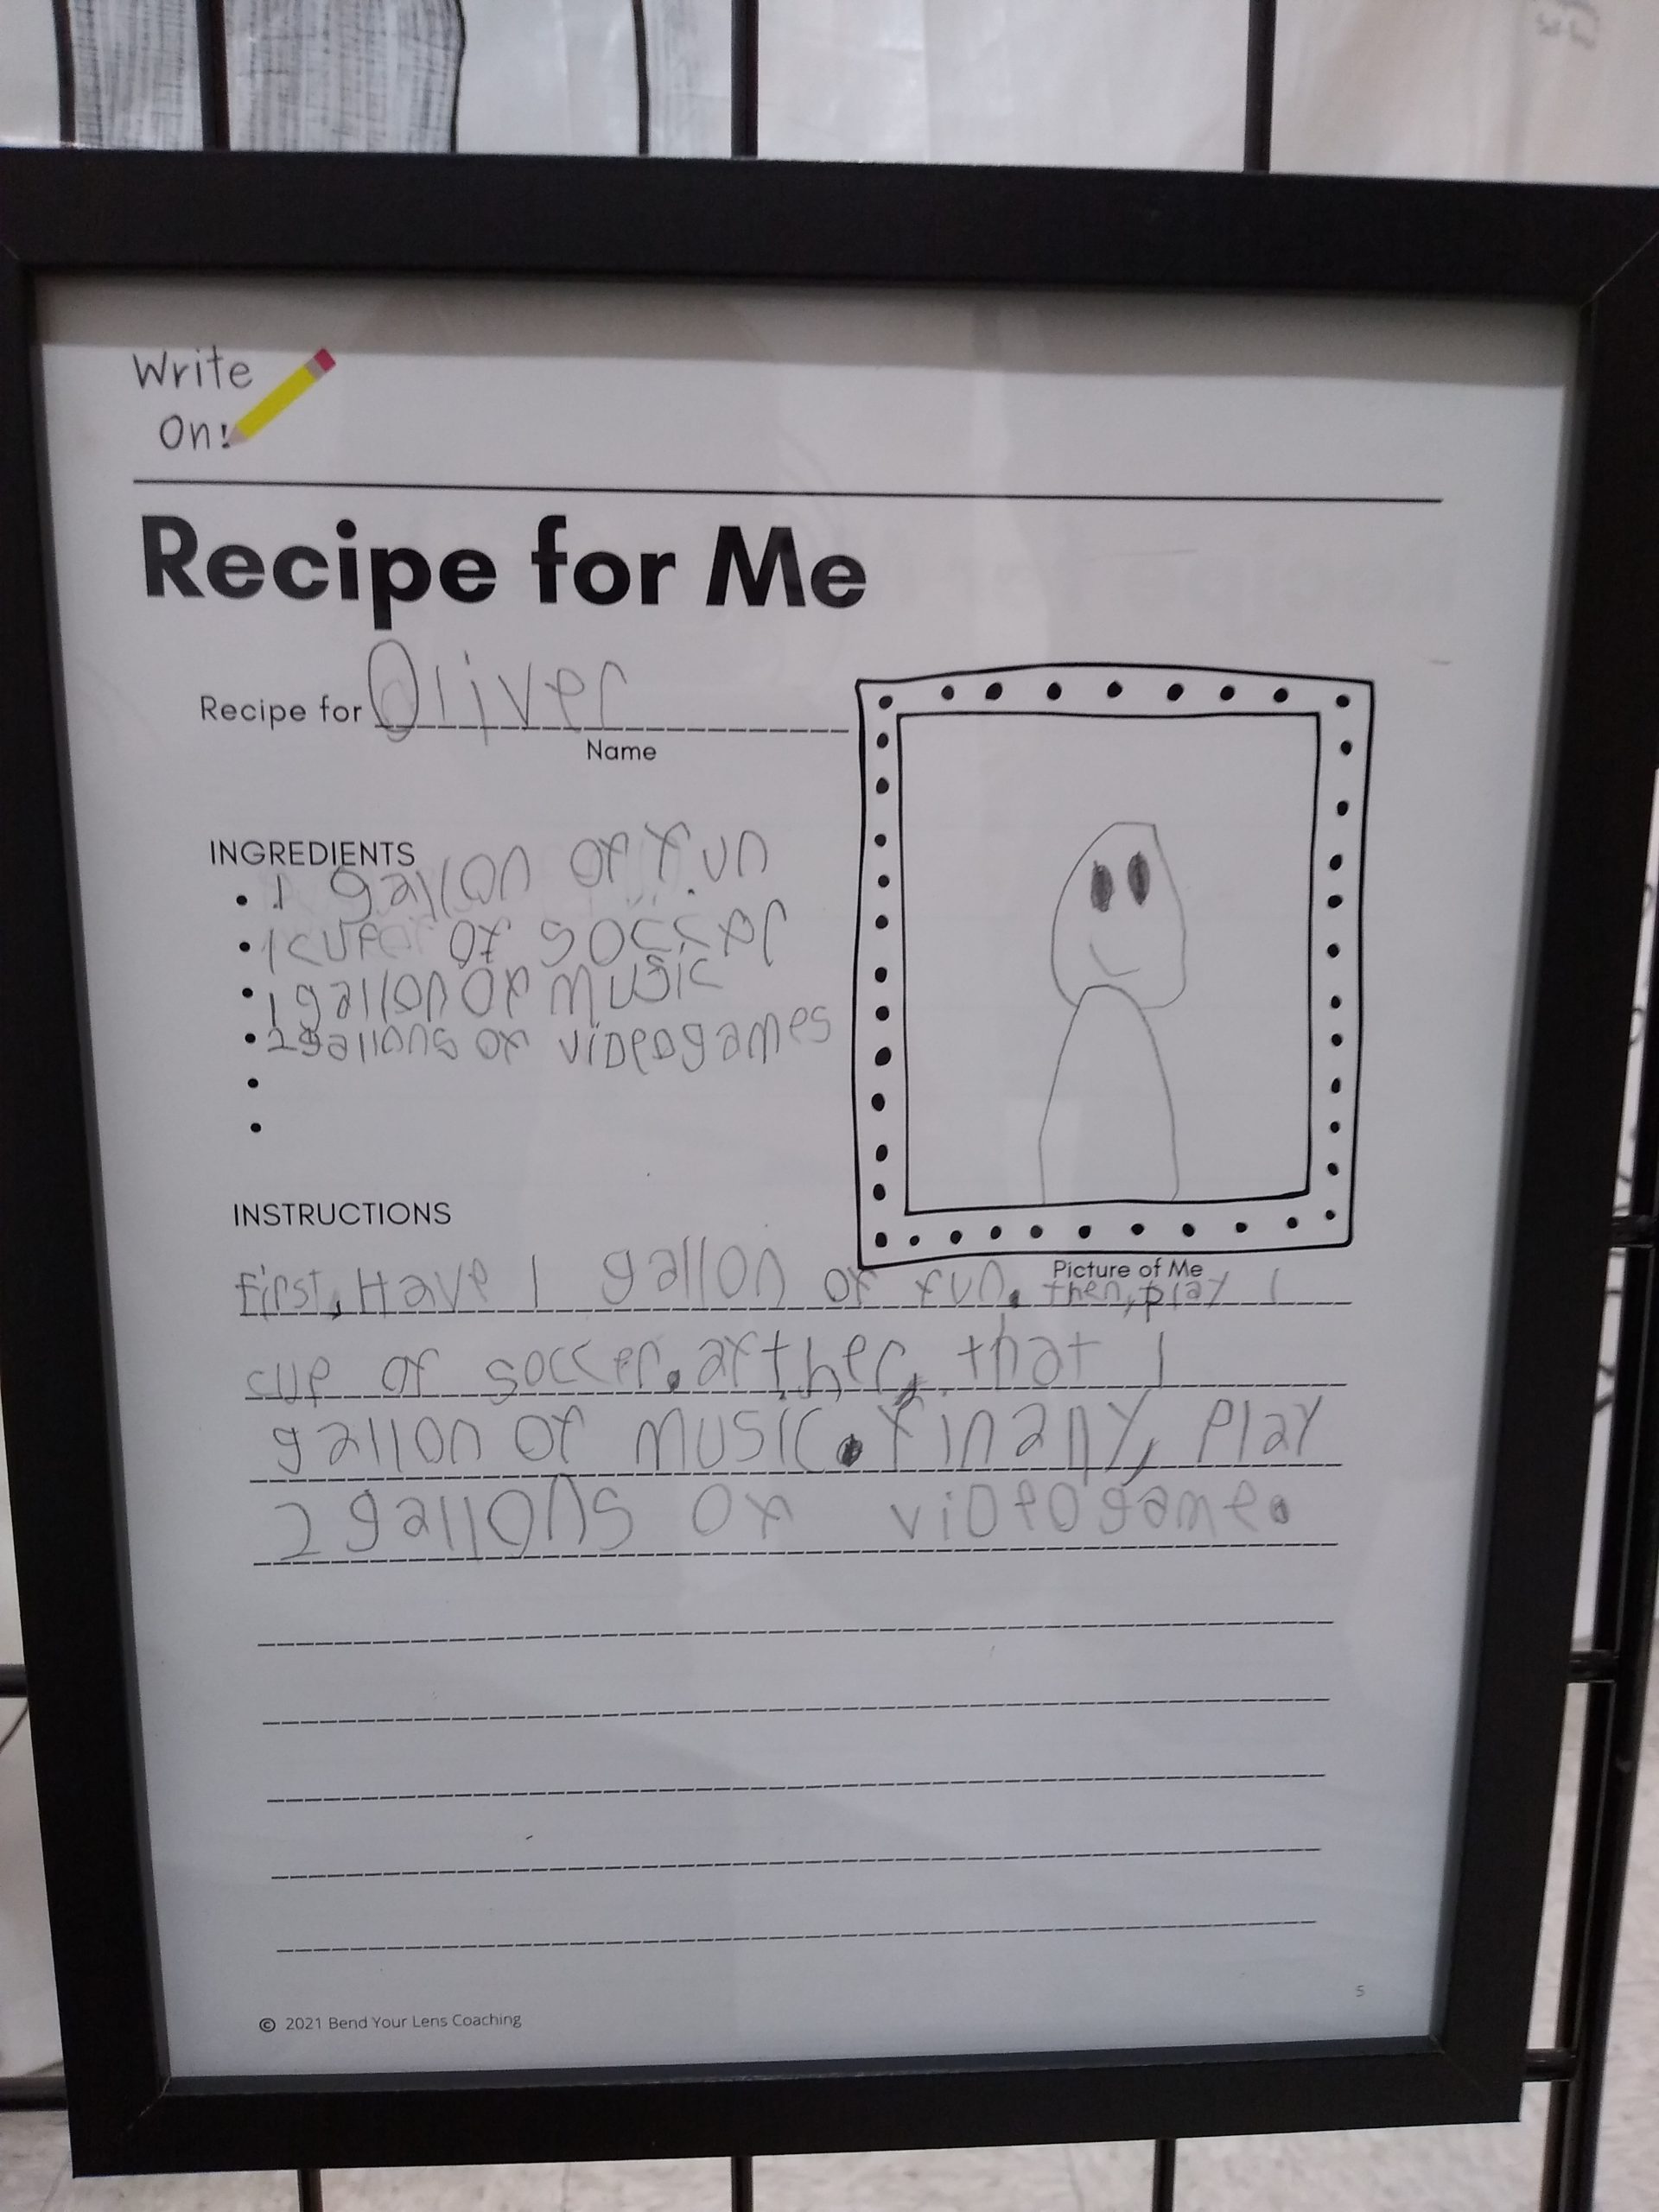 Write
On!
Recipe for Me
Recipe for Oliver
Name
INGREDIENTS
• 1 gallon of fun
• 1 cup of soccer
• 1 gallon of music
• 2 gallons of videogames
•
•
INSTRUCTIONS
Picture of Me
First, Have 1 gallon of fun. then, play 1
cup of soccer. afther, that 1
gallon of music. Finally, Play
2 gallons of videogame.
5
© 2021 Bend Your Lens Coaching